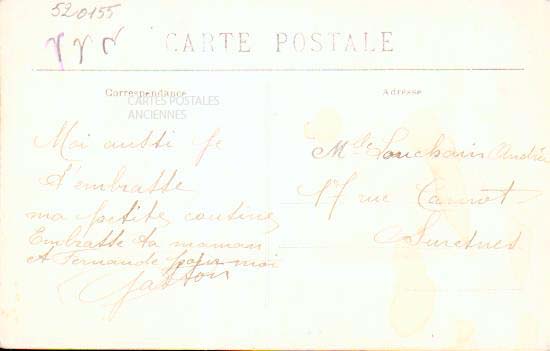 520155
CARTE POSTALE
Correspondance
Adresse
CARTES POSTALES
ANCIENNES
Moi aussi je
t'embrasse
ma petite cousine
Embrasse ta maman
et Fernande pour moi
Gaston
Mlle Louchain Andrée
17 rue Carnot
Suresnes